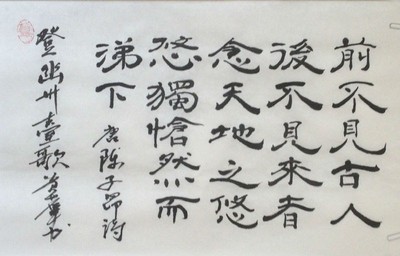 前不見古人
後不見來者
念天地之悠
悠獨愴然而
涕下
唐陳子昂詩
登幽州臺歌 書